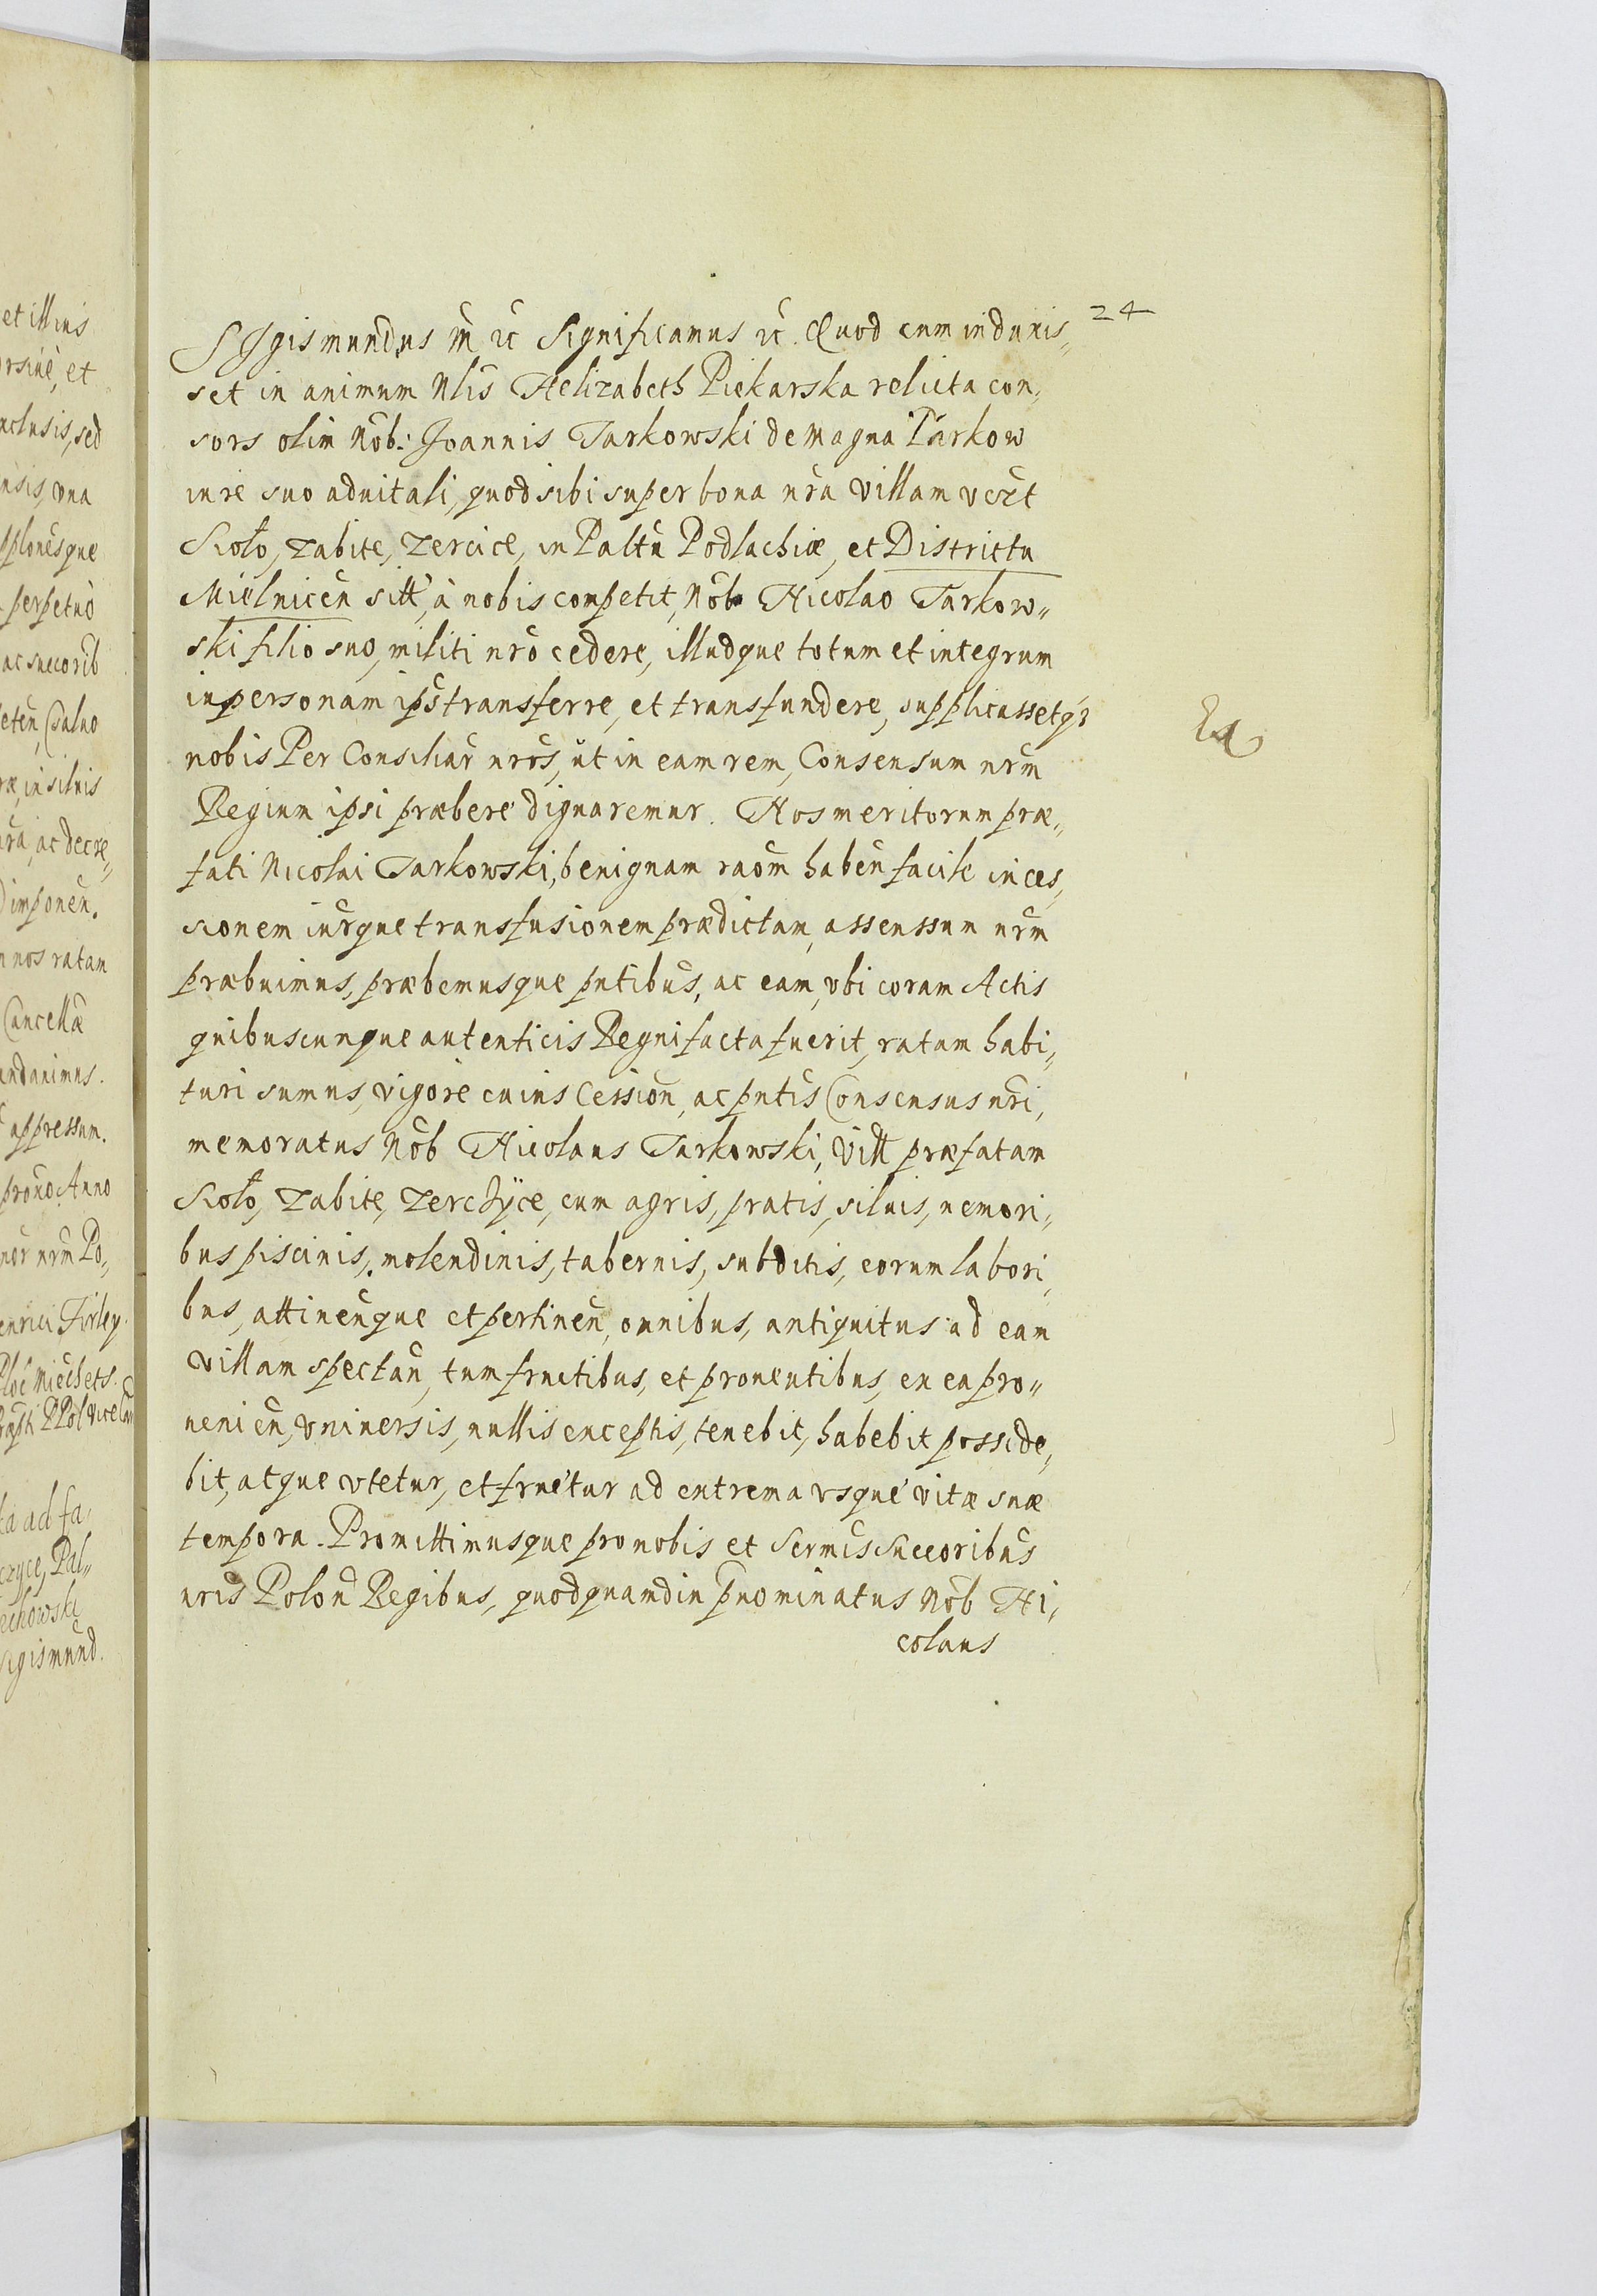 24
SIgismundus m̃ ꝛc̃ Significamus ꝛc̃. Quod cum induxis„
set in animum Nlis̃ Helizabeth Piekarska relicta con„
sors olim Nob̃: Joannis Tarkowski de Magna Tarkow
iure suo aduitali, quod sibi super bona nr̃a Villam
Sioło, Zabite, Zercice, in Paltũ Podlachiæ, et Districtu
Mielnicen̄ sitt̃, à nobis competit, Nob̃ Nicolao Tarkow„
ski filio suo, militi nr̃o cedere, illudque totum et integrum
in personam ips̃ transferre, et transfundere, supplicassetq3
nobis Per Consiliar̃ nr̃os, ut in eam rem, Consensum nr̃m
Regium ipsi præbere dignaremur. Nos meritorum præ„
fati Nicolai Tarkowski, benignam rãom haben̄ facile in ces„
sionem iurq̃ue transfusionem prædictam, assenssum nr̃m
præbuimus, præbemusque pñtibus, ac eam, vbi coram Actis
quibuscunque autenticis Regni facta fuerit, ratam habi„
turi sumus, vigore cuius Cession̄, ac pñtis Consensus nr̃i,
memoratus Nob̃ Nicolaus Tarkowski, Vill̃ præfatam
Sioło, Zabite, Zerchÿce, cum agris, pratis, siluis, nemori„
bus piscinis, molendinis, tabernis, subditis, eorum labori„
bus, attinen̄que et pertinen̄, omnibus, antiquitus ad eam
Villam spectan̄, tum fructibus, et prouentibus, ex ea pro„
uenien̄, vniuersis, nullis exceptis, tenebit, habebit posside„
bit, atque vtetur, et fruetur ad extrema vsque vitæ suæ
tempora. Promittimusque pro nobis et Sermis̃ Succoribus̃
nr̃is Polon̄ Regibus, quod quamdiu p̃nominatus Nob̃ Ni„
colaus